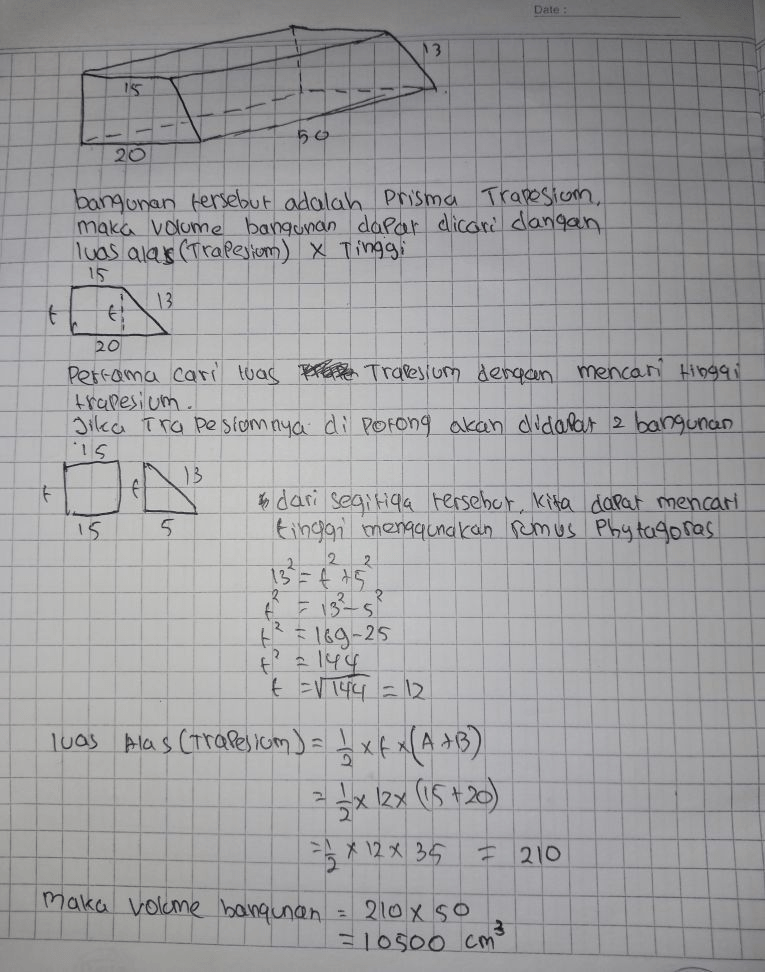 Date :
13
15
50
20
bangunan tersebut adalah Prisma Trapesium,
maka volume bangunan dapat dicari dangan
luas alas (Trapesium) x Tinggi
15
t t 13
20
Pertama cari luas Trapesium dengan mencari tinggi
trapesium.
Jika Trapesiumnya di potong akan didapat 2 bangunan
15
t t 13
15 5
dari segitiga tersebut, kita dapat mencari
tinggi menggunakan rumus Phytagoras
13² = t² + 5²
t² = 13² - 5²
t² = 169 - 25
t² = 144
t = √144 = 12
luas Alas (Trapesium) = 1/2 x t x (A + B)
= 1/2 x 12 x (15 + 20)
= 1/2 x 12 x 35 = 210
maka volume bangunan = 210 x 50
= 10500 cm³